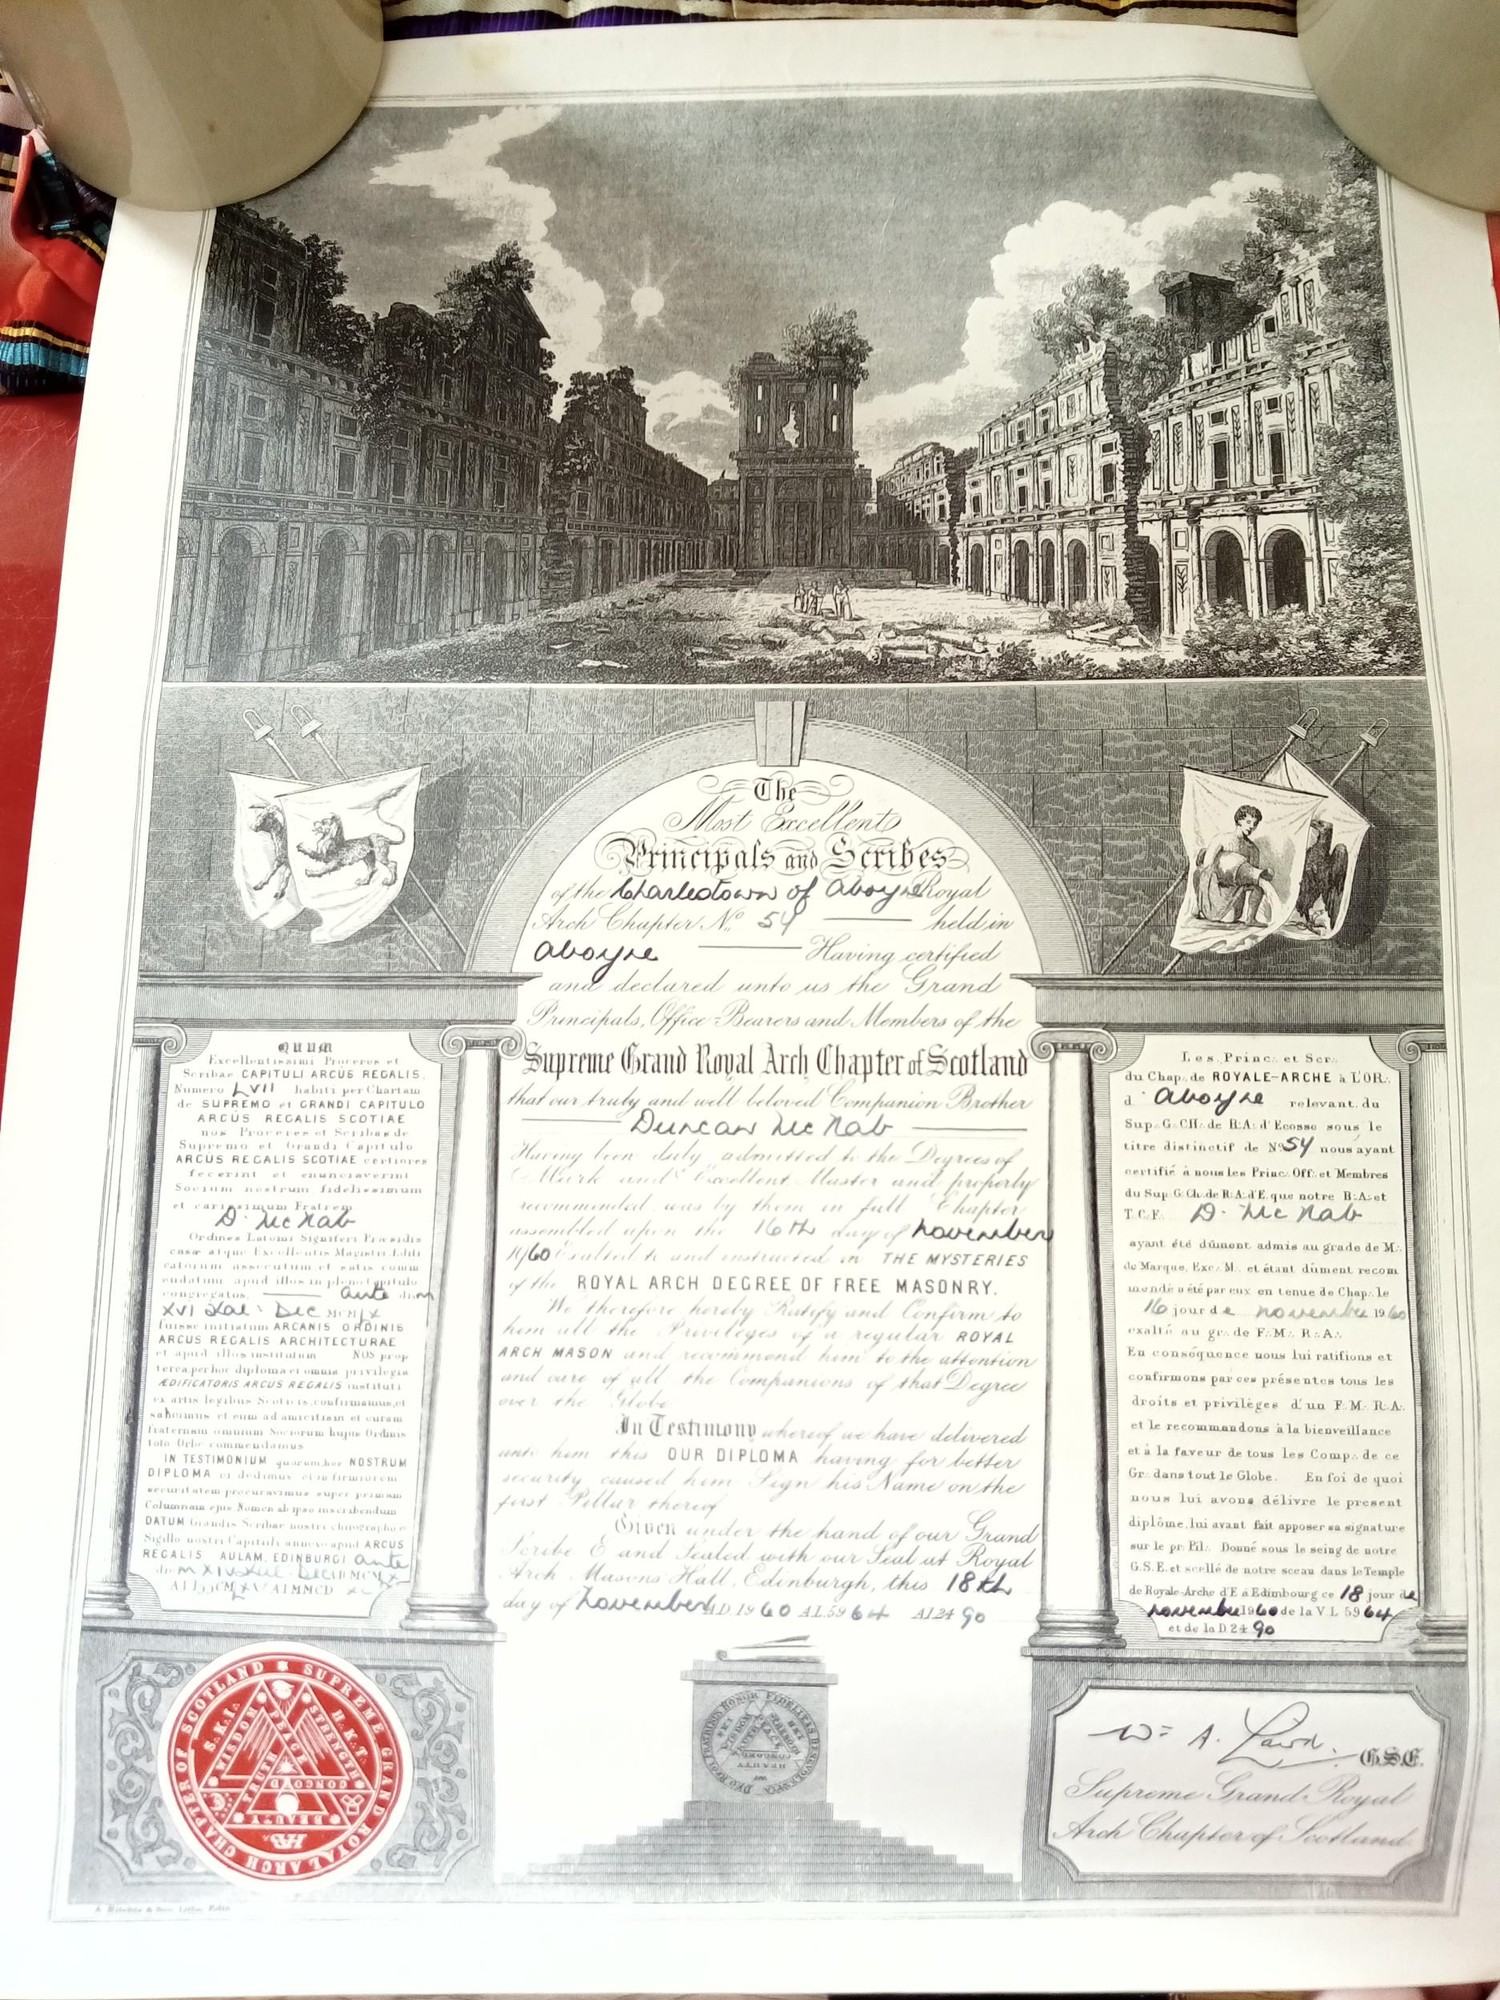 The
Most Excellent
Principals and Scribes
of the Charlestown of Aboyne Royal
Arch Chapter No. 54 held in
Aboyne Having certified
and declared unto us the Grand
Principals, Office-Bearers and Members of the
Supreme Grand Royal Arch Chapter of Scotland
that our truly and well beloved Companion Brother
Duncan McNab
Having been duly admitted to the Degrees of
Mark and Excellent Master and properly
recommended was by them in full Chapter
assembled upon the 16th day of November
1960 Exalted to and instructed in THE MYSTERIES
of the ROYAL ARCH DEGREE OF FREE MASONRY.
We therefore hereby Ratify and Confirm to
him all the Privileges of a regular ROYAL
ARCH MASON and recommend him to the attention
and care of all the Companions of that Degree
over the Globe
In Testimony whereof we have delivered
unto him this OUR DIPLOMA having for better
security caused him Sign his Name on the
first Pillar thereof
Given under the hand of our Grand
Scribe E and Sealed with our Seal at Royal
Arch Masons Hall, Edinburgh, this 18th
day of November A.D. 1960 A.L. 5964 A.I. 2490
QUUM
Excellentissimi Proceres et
Scribae CAPITULI ARCUS REGALIS.
Numero LVII habiti per Chartam
de SUPREMO et GRANDI CAPITULO
ARCUS REGALIS SCOTIAE
nos Proceres et Scribas de
Supremo et Grandi Capitulo
ARCUS REGALIS SCOTIAE certiores
fecerint et enunciaverint
Socium nostrum fidelissimum
et carissimum Fratrem
D. McNab
Ordines Latomi Signiferi Praesidis
casae atque Excellentis Magistri Edifi
catorum assecutum et satis comm
endatum apud illos in pleno Capitulo
congregatos, ante diem
XVI Kal: Dec MCMLX
fuisse initiatum ARCANIS ORDINIS
ARCUS REGALIS ARCHITECTURAE
et apud illos institutum NOS prop
terea per hoc diploma et omnia privilegia
ÆDIFICATORIS ARCUS REGALIS instituti
ex artis legibus Scotiis, confirmamus, et
sancimus et eum ad amicitiam et curam
fraternam omnium Sociorum hujus Ordinis
toto Orbe commendamus
IN TESTIMONIUM quorum hoc NOSTRUM
DIPLOMA ei dedimus et in firmiorem
securitatem procuravimus super primam
Columnam ejus Nomen ab ipso inscribendum
DATUM Grandis Scribae nostri chirographo et
Sigillo nostri Capituli annexo apud ARCUS
REGALIS AULAM, EDINBURGI ante
Les Princ. et Scr.
du Chap. de ROYALE-ARCHE à L'OR.
d' Aboyne relevant du
Sup. G. CH. de R.A. d'Ecosse sous le
titre distinctif de No. 54 nous ayant
certifié à nous les Princ. Off. et Membres
du Sup. G. Ch. de R.A. d'E. que notre B.A. et
T.C.F. D. McNab
ayant été dûment admis au grade de M.
de Marque, Exc. M. et étant dûment recom
mendé a été par eux en tenue de Chap. le
16 jour de november 1960
exalté au gr. de F.M. R.A.
En conséquence nous lui ratifions et
confirmons par ces présentes tous les
droits et privilèges d'un F.M. R.A.
et le recommandons à la bienveillance
et à la faveur de tous les Comp. de ce
Gr. dans tout le Globe. En foi de quoi
nous lui avons délivré le present
diplôme, lui avant fait apposer sa signature
sur le pr. Pil. Donné sous le seing de notre
G.S.E. et scellé de notre sceau dans le Temple
de Royale-Arche d'E à Edimbourg ce 18 jour de
november 1960 de la V.L. 5964
et de la D. 2490
SUPREME GRAND ROYAL ARCH CHAPTER OF SCOTLAND
S.K.I. H.K.T. H.A.B.
WISDOM STRENGTH BEAUTY
PEACE TRUTH CONCORD
Wm A. Laird. G.S.E.
Supreme Grand Royal
Arch Chapter of Scotland